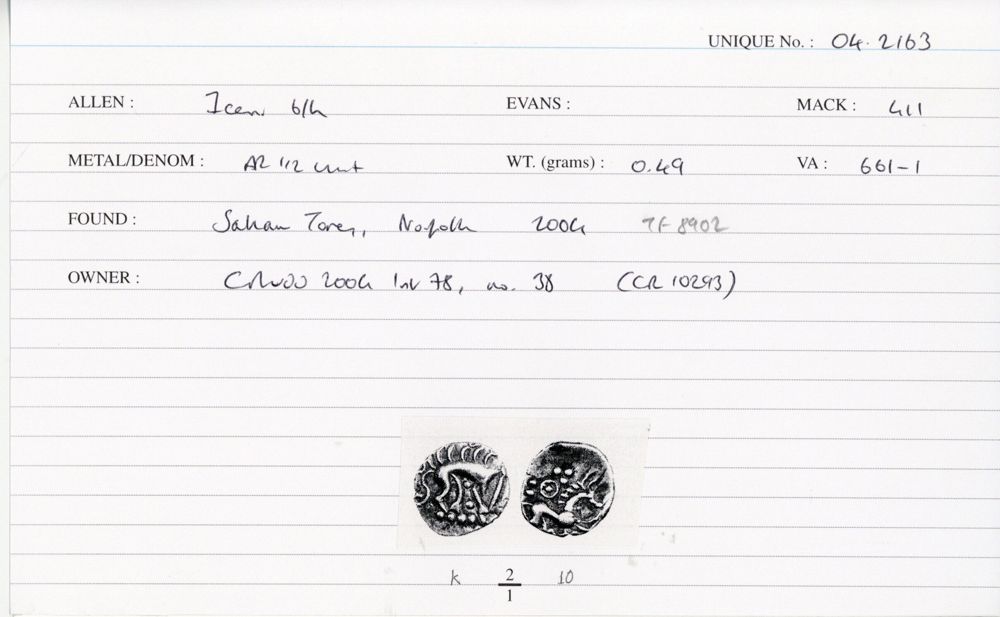 UNIQUE No. : 04.2163
ALLEN : Iceni b/h EVANS : MACK : 411
METAL/DENOM : AR 1/2 unit WT. (grams) : 0.49 VA : 661-1
FOUND : Saham Toney, Norfolk 2004 TF 8902
OWNER : 2004 no. 38 (CR 10293)
k 2 10
1